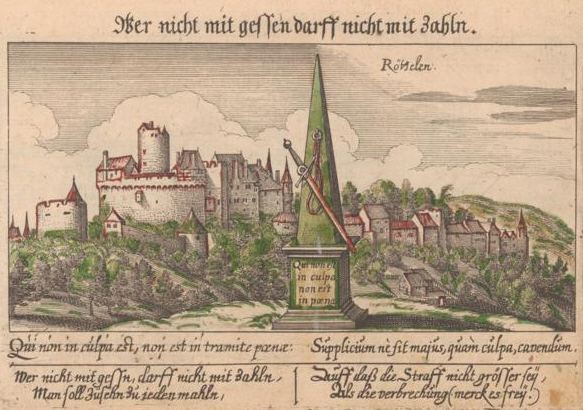 Wer nicht mit gessen darff nicht mit Zahln.
Rötelen.
Qui non est
in culpa
non erit
in pœna
Qui non in culpa est, non est in tramite pœnæ:
Supplicium ne sit majus, quam culpa, cavendum.
Wer nicht mit gessn, darff nicht mit Zahln,
Man soll Zusehn Zu jeden mahln,
Auff daß die Straff nicht grösser sey,
Als die verbrechung (merck es frey.)